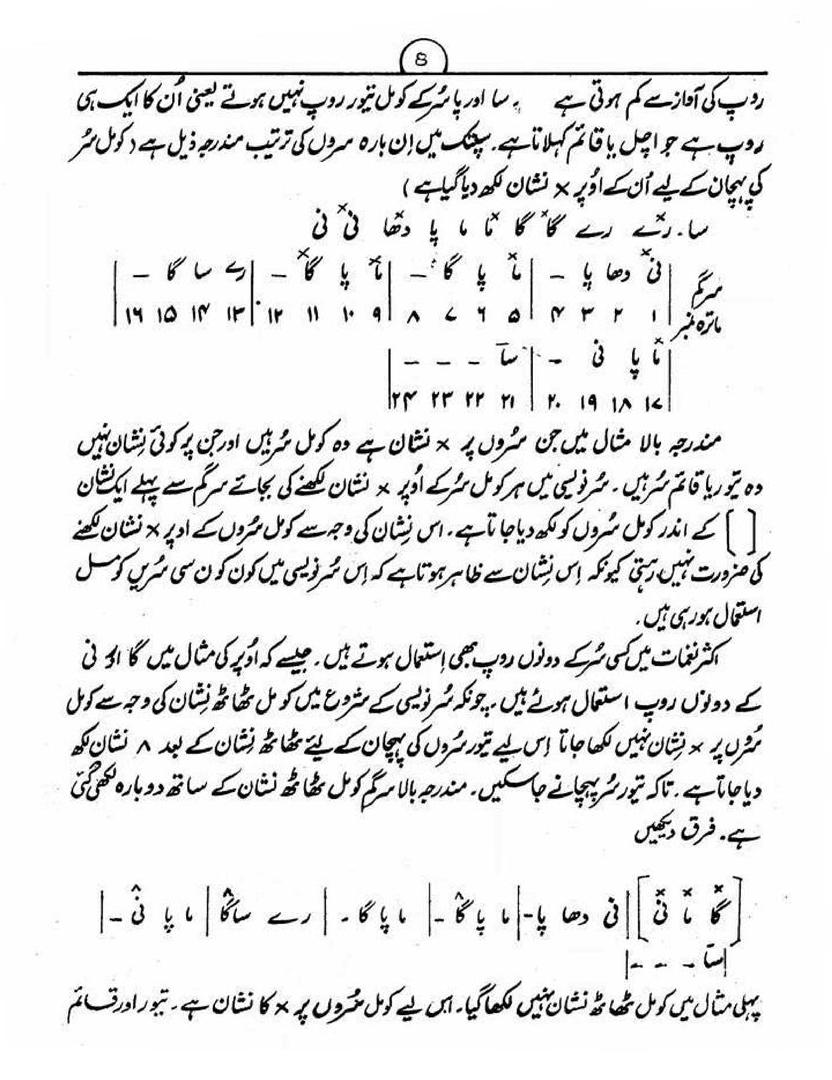 8
روپ کی آواز سے کم ہوتی ہے ۔ سا اور پا سُر کے کومل تیور روپ نہیں ہوتے یعنی اُن کا ایک ہی
روپ ہے جو اچل یا قائم کہلاتا ہے۔ سپتک میں اِن بارہ سروں کی ترتیب مندرجہ ذیل ہے ( کومل سُر
کی پہچان کے لیے اُن کے اُوپر × نشان لکھ دیا گیا ہے )
سا۔ رے× رے گا× گا ما× ما پا دھا× دھا نی× نی
سرگم | نی× دھا پا – | ما× پا گا – | ما× پا گا× – | رے سا گا – |
ماترہ نمبر | ۱ ۲ ۳ ۴ | ۵ ۶ ۷ ۸ | ۹ ۱۰ ۱۱ ۱۲ | ۱۳ ۱۴ ۱۵ ۱۶ |
| ما× پا نی – | سا – – – |
| ۱۷ ۱۸ ۱۹ ۲۰ | ۲۱ ۲۲ ۲۳ ۲۴ |
مندرجہ بالا مثال میں جن سُروں پر × نشان ہے وہ کومل سُر ہیں اور جن پر کوئی نِشان نہیں
وہ تیور یا قائم سُر ہیں۔ سُر نویسی میں ہر کومل سُر کے اُوپر × نشان لکھنے کی بجائے سرگم سے پہلے ایک نشان
[ ] کے اندر کومل سُروں کو لکھ دیا جاتا ہے۔ اس نِشان کی وجہ سے کومل سُروں کے اوپر × نشان لکھنے
کی ضرورت نہیں رہتی کیونکہ اِس نِشان سے ظاہر ہوتا ہے کہ اِس سُر نویسی میں کون کون سی سُریں کومل
استعمال ہو رہی ہیں۔
اکثر نغمات میں کسی سُر کے دونوں روپ بھی اِستعمال ہوتے ہیں۔ جیسے کہ اُوپر کی مثال میں گا اور نی
کے دونوں روپ استعمال ہوئے ہیں۔ چونکہ سُر نویسی کے شروع میں کومل ٹھاٹھ نِشان کی وجہ سے کومل
سُروں پر × نِشان نہیں لکھا جاتا اِس لیے تیور سُروں کی پہچان کے لیئے ٹھاٹھ نِشان کے بعد ^ نشان لکھ
دیا جاتا ہے۔ تاکہ تیور سُر پہچانے جا سکیں۔ مندرجہ بالا سرگم کومل ٹھاٹھ نشان کے ساتھ دوبارہ لکھی گئی
ہے۔ فرق دیکھیں
[گا× ما× نی×] | نی دھا پا- | ما پا گا^ - | ما پا گا - | رے سا گا^ | ما پا نی^ - |
|سا - - - |
پہلی مثال میں کومل ٹھاٹھ نشان نہیں لکھا گیا۔ اس لیے کومل سُروں پر × کا نشان ہے۔ تیور اور قائم